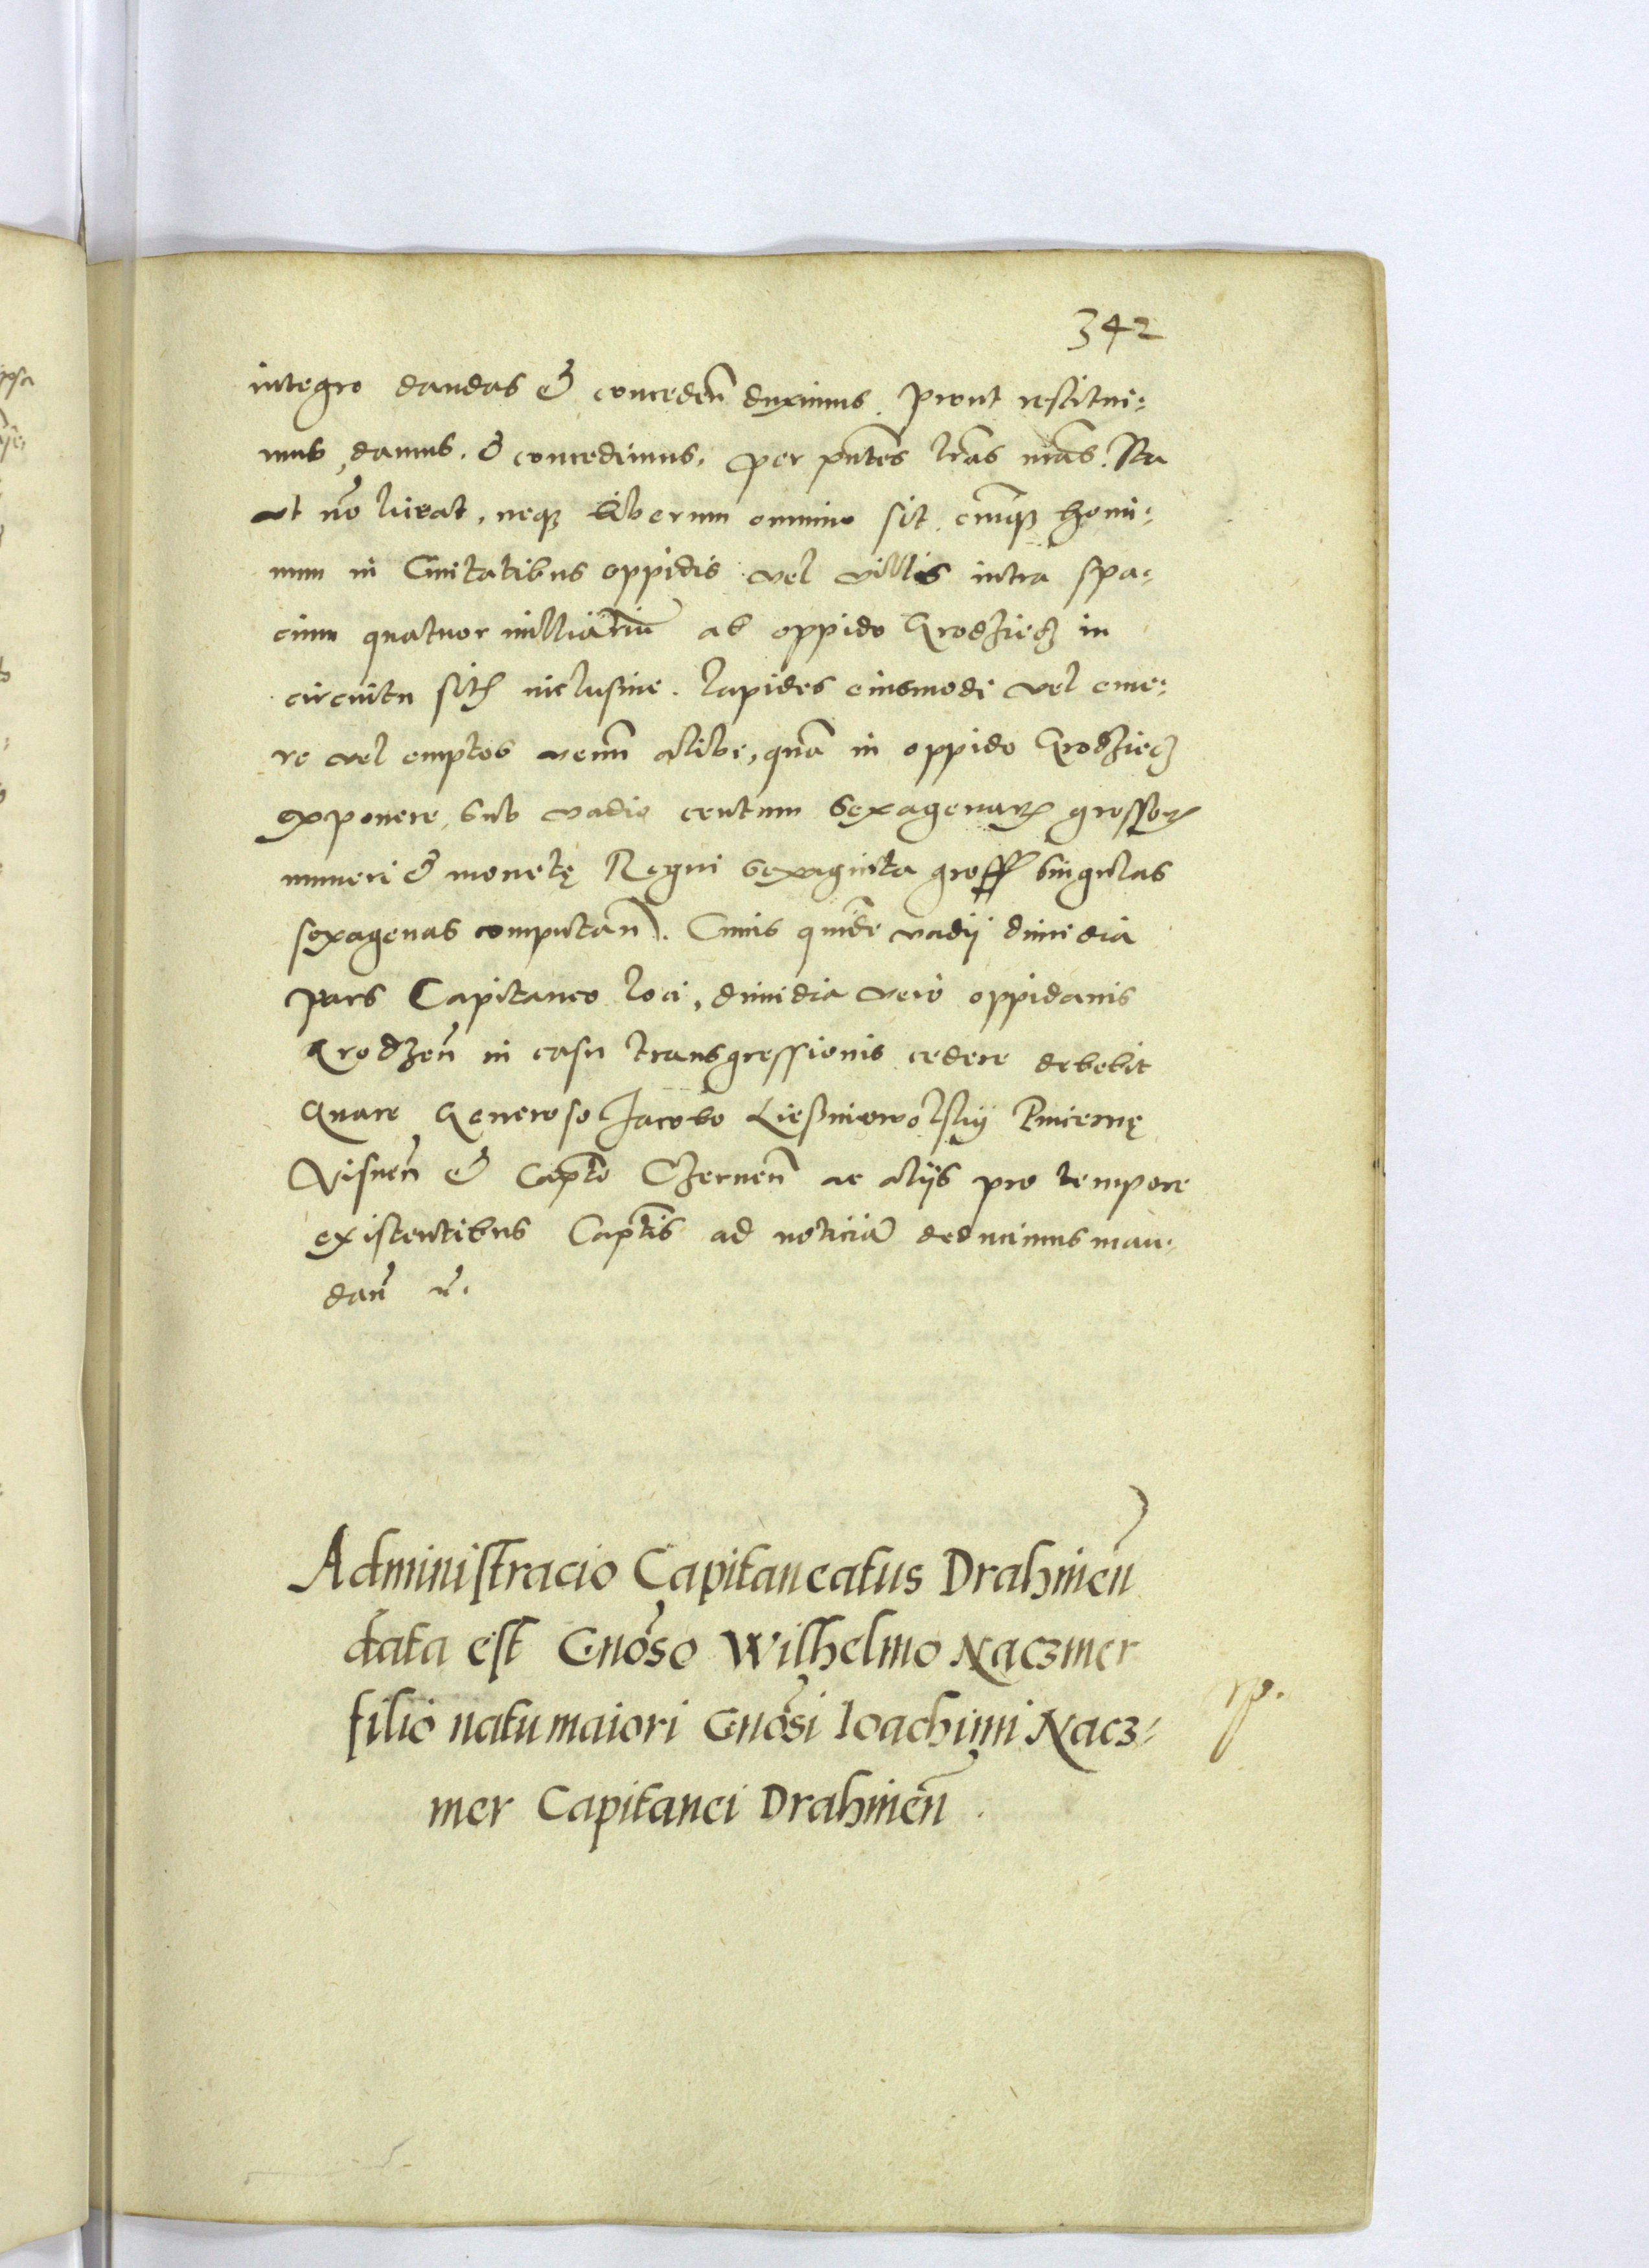 342
integro dandas & conceden̄ duximus. Prout restitui:
mus, damus, & concedimus, per pn̄tes lr̄as nr̄as. Ita
ut nō liceat, neq; liberum omnino sit cuiq; homi:
num in Ciuitatibus oppidis vel villis intra spa:
cium quatuor milliariū ab oppido Grodziecz in
circuitu sitis inclusiue. Lapides eiusmodi vel eme:
re vel emptos venū alibi, quā in oppido Grodziecz
exponere, sub vadio centum sexagenarꝝ grossorꝝ
numeri & monetę Regni sexaginta gross singulas
sexagenas computan̄. Cuius quidē vadij dimidia
pars Capitaneo loci, dimidia vero oppidanis
Grodzen̄ in casu transgressionis cedere debebit
Quare Generoso Jacobo Lieszniowolsky Pincernę
Visnen̄ & Capt̄o Czernen̄ ac alijs pro tempore
existentibus Capt̄is ad noticiā deducimus man:
dan̄ &.
Administracio Capitaneatus Drahimen̄
data est Gnōso Wilhelmo Naczmer
filio natu maiori Gnōsi Ioachimi Nacz:
mer Capitanei Drahimen̄.